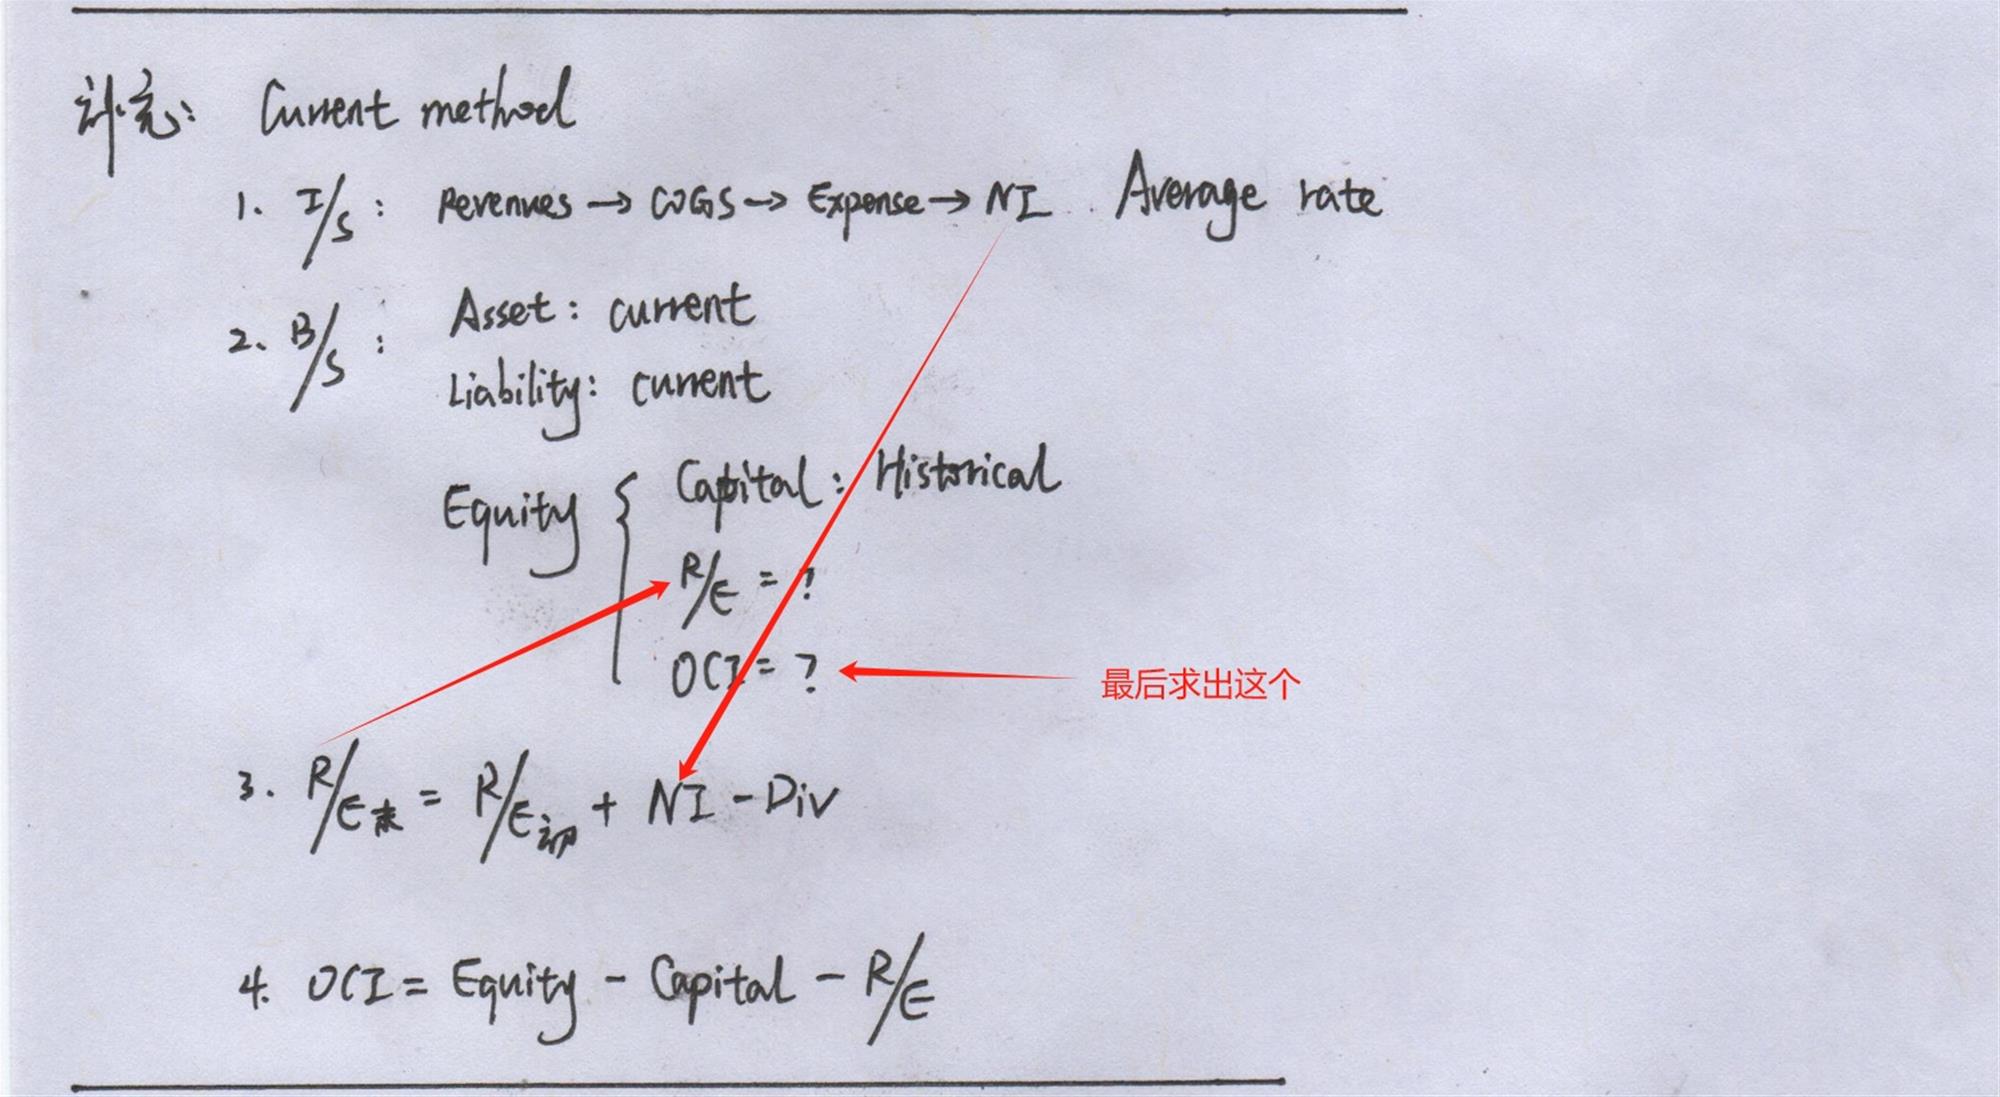 补充: Current method
1. I/S: Revenues → COGS → Expense → NI. Average rate
2. B/S: Asset: current
Liability: current
Equity { Capital: Historical
R/E = ?
OCI = ? 最后求出这个
3. R/E末 = R/E初 + NI - Div
4. OCI = Equity - Capital - R/E